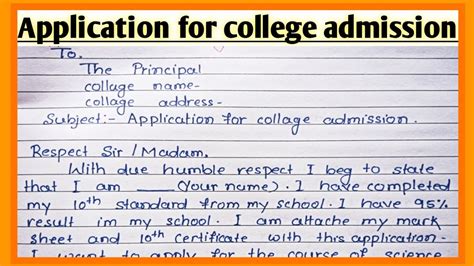 Application for college admission
To.
The Principal
collage name-
collage address-
Subject:- Application for collage admission.
Respect Sir / Madam.
With due humble respect I beg to state
that I am ____ (Your name). I have completed
my 10th standard from my school. I have 95%
result im my school. I am attache my mark
sheet and 10th certificate with this application.
I want to apply for the course of science